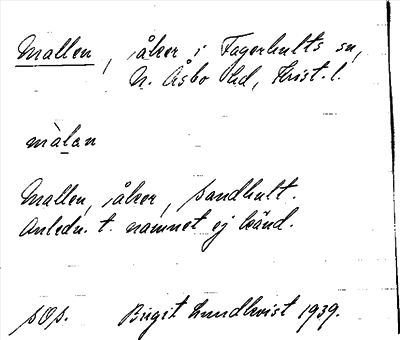 Mallen, åker i Fagerhults sn,
N. Åsbo hd, Krist. l.
màlan
Mallen, åker, Sandhult.
Anledn. t. namnet ej känd.
sOp. Birgit Lundkvist 1939.